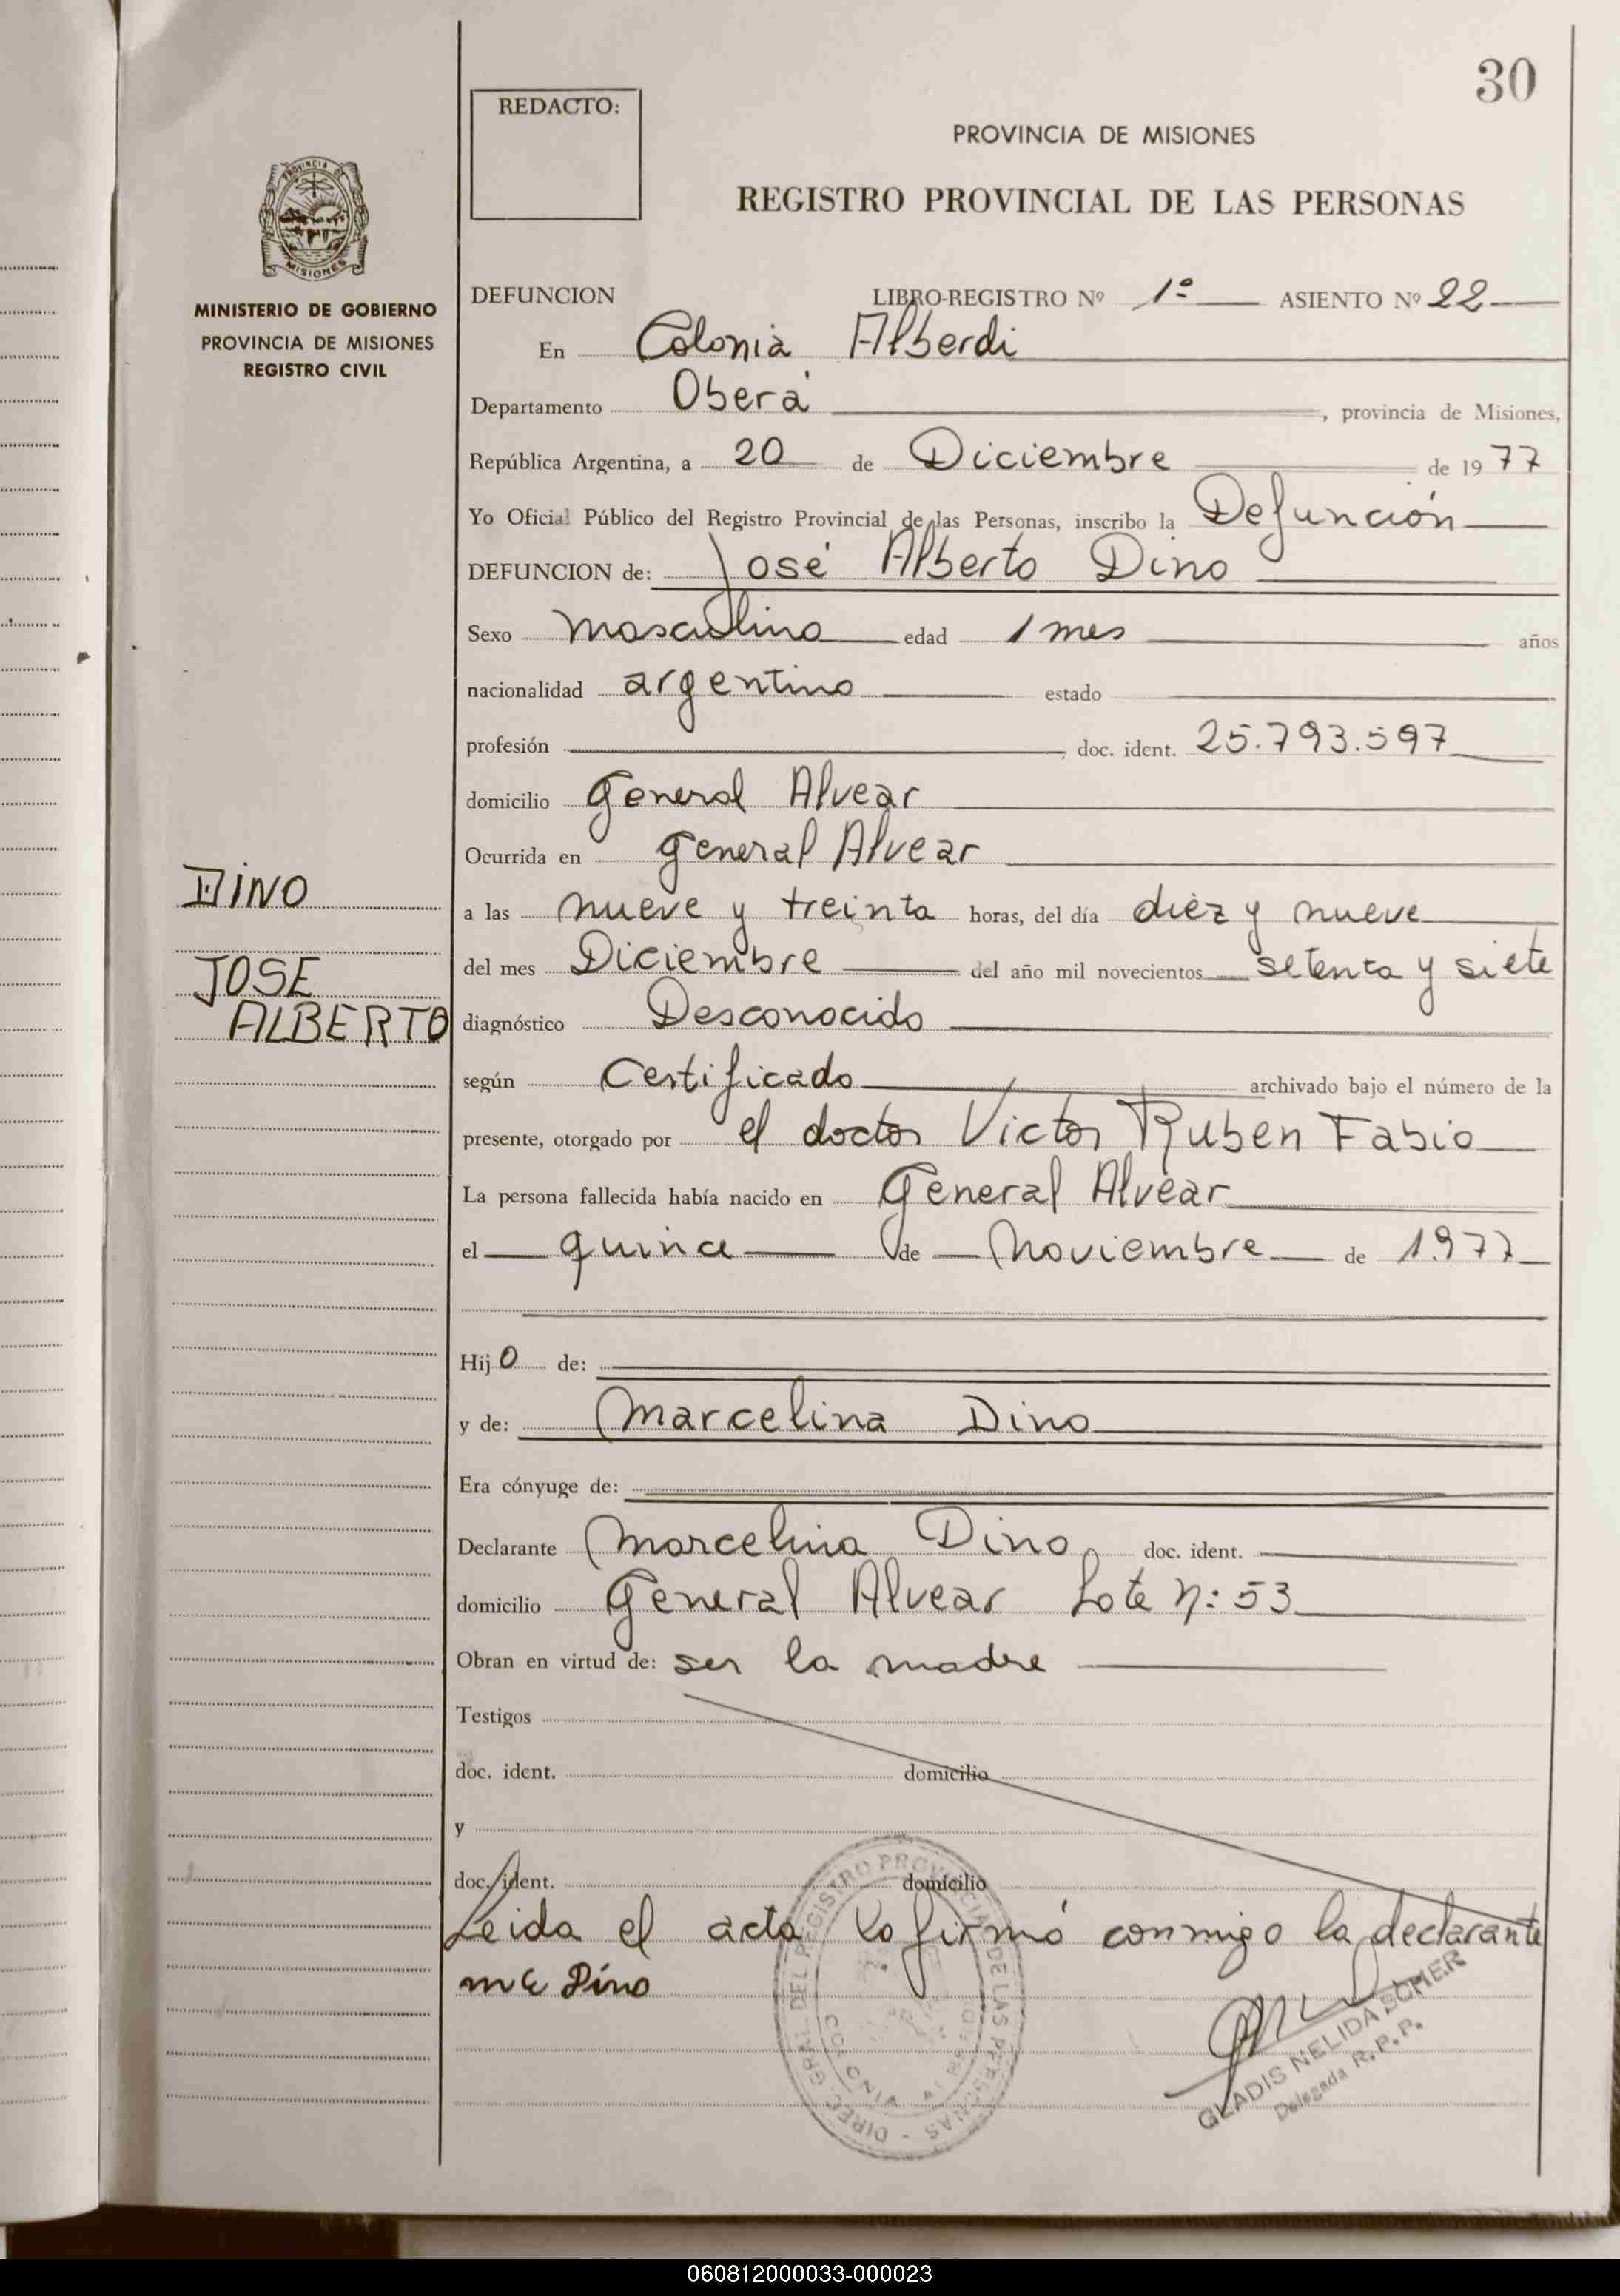 30
REDACTO:
PROVINCIA DE MISIONES
REGISTRO PROVINCIAL DE LAS PERSONAS
PROVINCIA DE
MISIONES
MINISTERIO DE GOBIERNO
PROVINCIA DE MISIONES
REGISTRO CIVIL
DEFUNCION LIBRO-REGISTRO Nº 1º ASIENTO Nº 22
En Colonia Alberdi
Departamento Oberá, provincia de Misiones,
República Argentina, a 20 de Diciembre de 1977
Yo Oficial Público del Registro Provincial de las Personas, inscribo la Defunción
DEFUNCION de: José Alberto Dino
Sexo masculino edad 1 mes años
nacionalidad argentino estado
profesión , doc. ident. 25.793.597
domicilio General Alvear
Ocurrida en General Alvear
DINO
a las nueve y treinta horas, del día diez y nueve
del mes Diciembre del año mil novecientos setenta y siete
JOSE
ALBERTO
diagnóstico Desconocido
según Certificado archivado bajo el número de la
presente, otorgado por el doctor Victor Ruben Fabio
La persona fallecida había nacido en General Alvear
el quince de Noviembre de 1977
Hijo de:
y de: Marcelina Dino
Era cónyuge de:
Declarante Marcelina Dino doc. ident.
domicilio General Alvear Lote n: 53
Obran en virtud de: ser la madre
Testigos
doc. ident. domicilio
y
doc. ident. domicilio
Leida el acta la firmó conmigo la declarante
Dino
DIREC. GRAL. DEL REGISTRO PROVINCIAL DE LAS PERSONAS
COLONIA ALBERDI
GLADIS NELIDA SCHER
Delegada R.P.P.
060812000033-000023